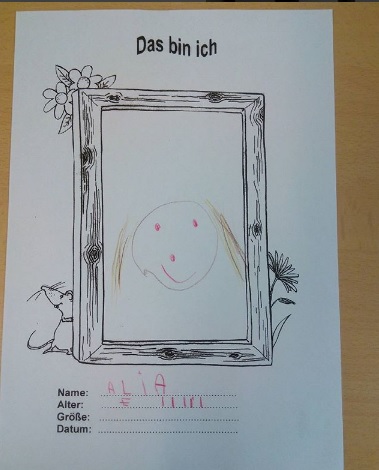 Das bin ich
Name: ALiA
Alter:
Größe:
Datum: